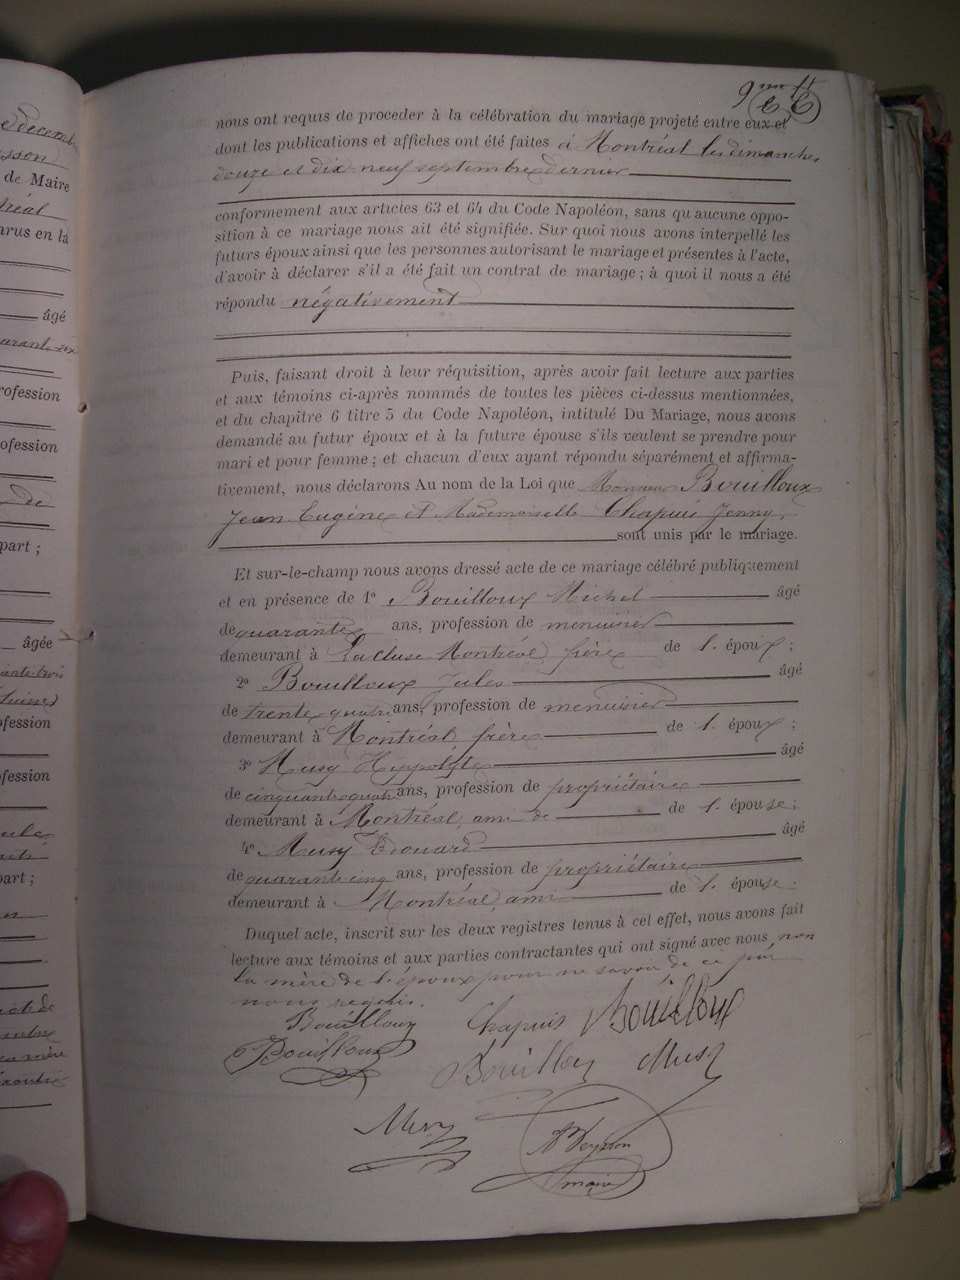 9me ft
nous ont requis de proceder à la célébration du mariage projeté entre eux et
dont les publications et affiches ont été faites à Montréal les dimanches
douze et dix neuf septembre dernier
conformement aux articles 63 et 64 du Code Napoléon, sans qu'aucune oppo-
sition à ce mariage nous ait été signifiée. Sur quoi nous avons interpellé les
futurs époux ainsi que les personnes autorisant le mariage et présentes à l'acte,
d'avoir à déclarer s'il a été fait un contrat de mariage ; à quoi il nous a été
répondu négativement
Puis, faisant droit à leur réquisition, après avoir fait lecture aux parties
et aux témoins ci-après nommés de toutes les pièces ci-dessus mentionnées,
et du chapitre 6 titre 5 du Code Napoléon, intitulé Du Mariage, nous avons
demandé au futur époux et à la future épouse s'ils veulent se prendre pour
mari et pour femme ; et chacun d'eux ayant répondu séparément et affirma-
tivement, nous déclarons Au nom de la Loi que Monsieur Bouilloux
Jean Eugène et Mademoiselle Chapuis Jenny,
sont unis par le mariage.
Et sur-le-champ nous avons dressé acte de ce mariage célébré publiquement
et en présence de 1º Bouilloux Michel âgé
de quarante ans, profession de menuisier
demeurant à Lacluse Montréal, frère de l. époux ;
2º Bouilloux Jules âgé
de trente quatre ans, profession de menuisier
demeurant à Montréal frère de l. époux ;
3º Musy Hippolyte âgé
de cinquante quatre ans, profession de propriétaire
demeurant à Montréal, ami de de l. épouse ;
4º Musy Edouard âgé
de quarante cinq ans, profession de propriétaire
demeurant à Montréal, ami de l. épouse.
Duquel acte, inscrit sur les deux registres tenus à cet effet, nous avons fait
lecture aux témoins et aux parties contractantes qui ont signé avec nous non
la mère de l'époux pour ne savoir de ce par
nous requis.
Bouilloux Chapuis Bouilloux
Bouilloux Bouilloux Musy
Musy
maire
de Maire
âgé
rofession
ofession
de
part ;
âgée
ofession
ofession
part ;